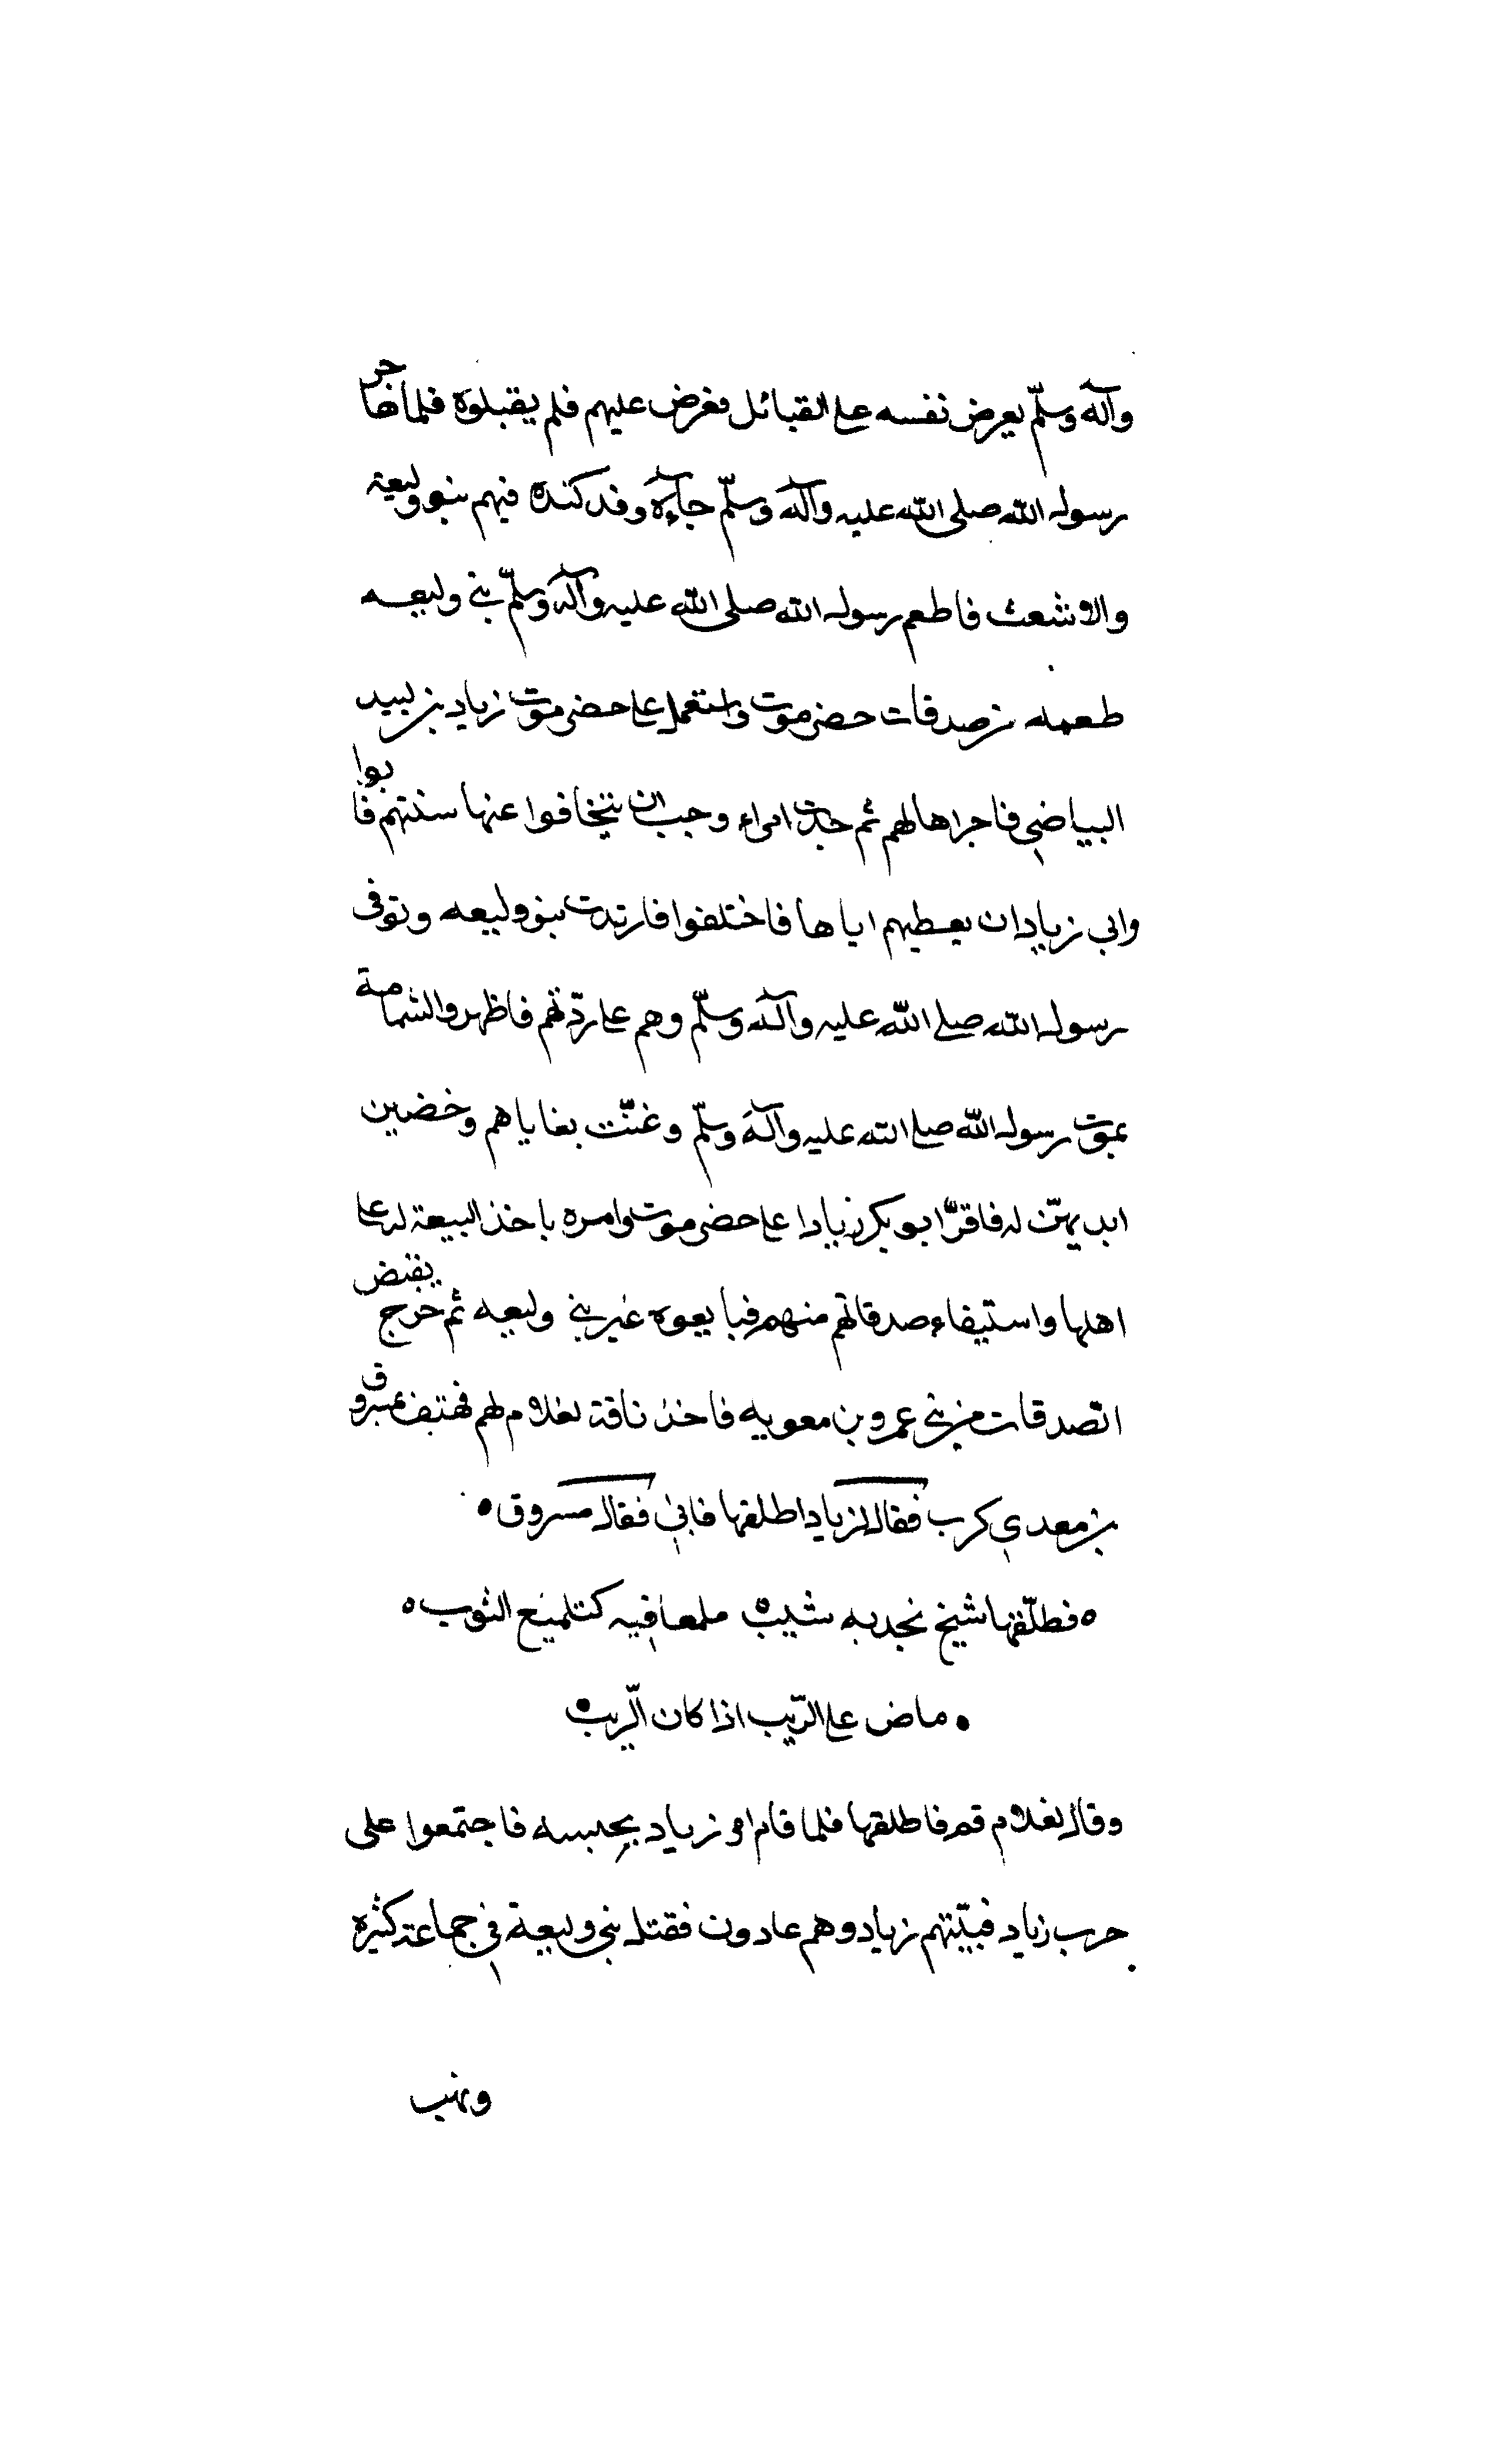 وآله وسلّم يعرض نفسه على القبائل فعرض عليهم فلم يقبلوه فلما هاجر
رسول الله صلى الله عليه وآله وسلّم جاءه وفد كنده فيهم بنو وليعة
والاشعث فاطعم رسول الله صلى الله عليه وآله وسلّم بني وليعه
طعمه من صدقات حضرموت واستعمل على حضرموت زياد بن لبيد
البياضي فاجراها لهم ثم وجب ان يتجافوا عنها سنتهم فابوا
وابى زياد ان يعطيهم اياها فاختلفوا فارتدت بنو وليعه وتوفى
رسول الله صلى الله عليه وآله وسلّم وهم على ردّتهم فاظهروا الشماتة
بموت رسول الله صلى الله عليه وآله وسلّم وغنّت بغاياهم وخضبن
ايديهنّ له فاقرّ ابو بكر زيادا على حضرموت وامره باخذ البيعة له على
اهلها واستيفاء صدقاتهم منهم فبايعوه غير بني وليعه ثم خرج يقبض
الصدقات من بني عمرو بن معويه فاخذ ناقة لغلام لهم فهتف بمسروق
بن معدي كرب فقال لزياد اطلقها فابى فقال مسروق
فطلّقها شيخ بخديه شيب ملمعا فيه كتلميع الثوب
ماض على الرّيب اذا كان الرّيب
وقال لغلام قم فاطلقها فلما قام امر زياد بحبسه فاجتمعوا على
حرب زياد فبيّتهم زياد وهم عادون فقتل بني وليعة في جماعة كثيره
ونهب